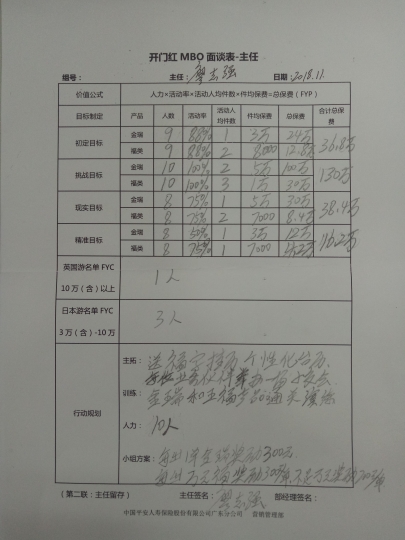 开门红 MBO 面谈表-主任
组号： 主任：廖志强 日期：2018.11.
价值公式 人力×活动率×活动人均件数×件均保费=总保费（FYP）
目标制定 产品 人数 活动率 活动人均件数 件均保费 总保费 合计总保费
初定目标 金瑞 9 88% 1 3万 24万 36.8万
福类 9 88% 2 8000 12.8万
挑战目标 金瑞 10 100% 2 5万 100万 130万
福类 10 100% 3 1万 30万
现实目标 金瑞 8 75% 1 5万 30万 38.4万
福类 8 75% 2 7000 8.4万
精准目标 金瑞 8 50% 1 3万 12万 16.2万
福类 8 75% 1 7000 4.2万
英国游名单 FYC
10 万（含）以上 1人
日本游名单 FYC
3 万（含）-10 万 3人
行动规划
主拓：送福字挂历 个性化台历
训练：金瑞和平福产品通关演练
人力：10人
小组方案：每出1件金瑞奖励300元
（第二联：主任留存） 主任签名：廖志强 部经理签名：
中国平安人寿保险股份有限公司广东分公司 营销管理部